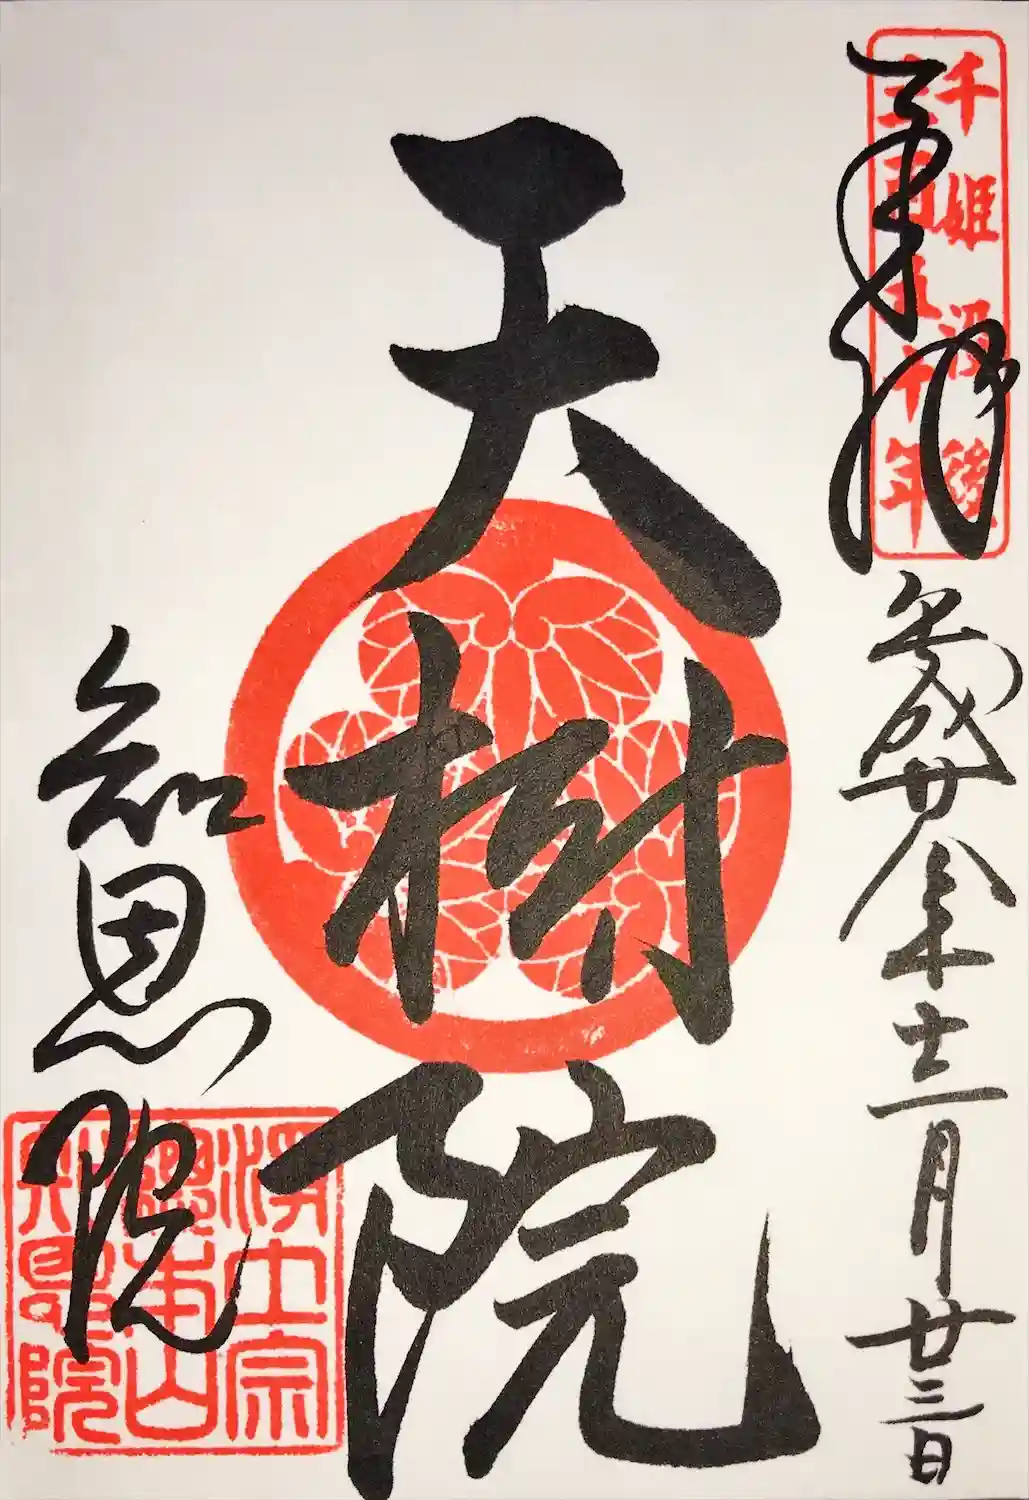 千姫没後
三百五十年
奉拝
平成廿八年十二月廿三日
天樹院
知恩院
浄土宗
總本山
知恩院